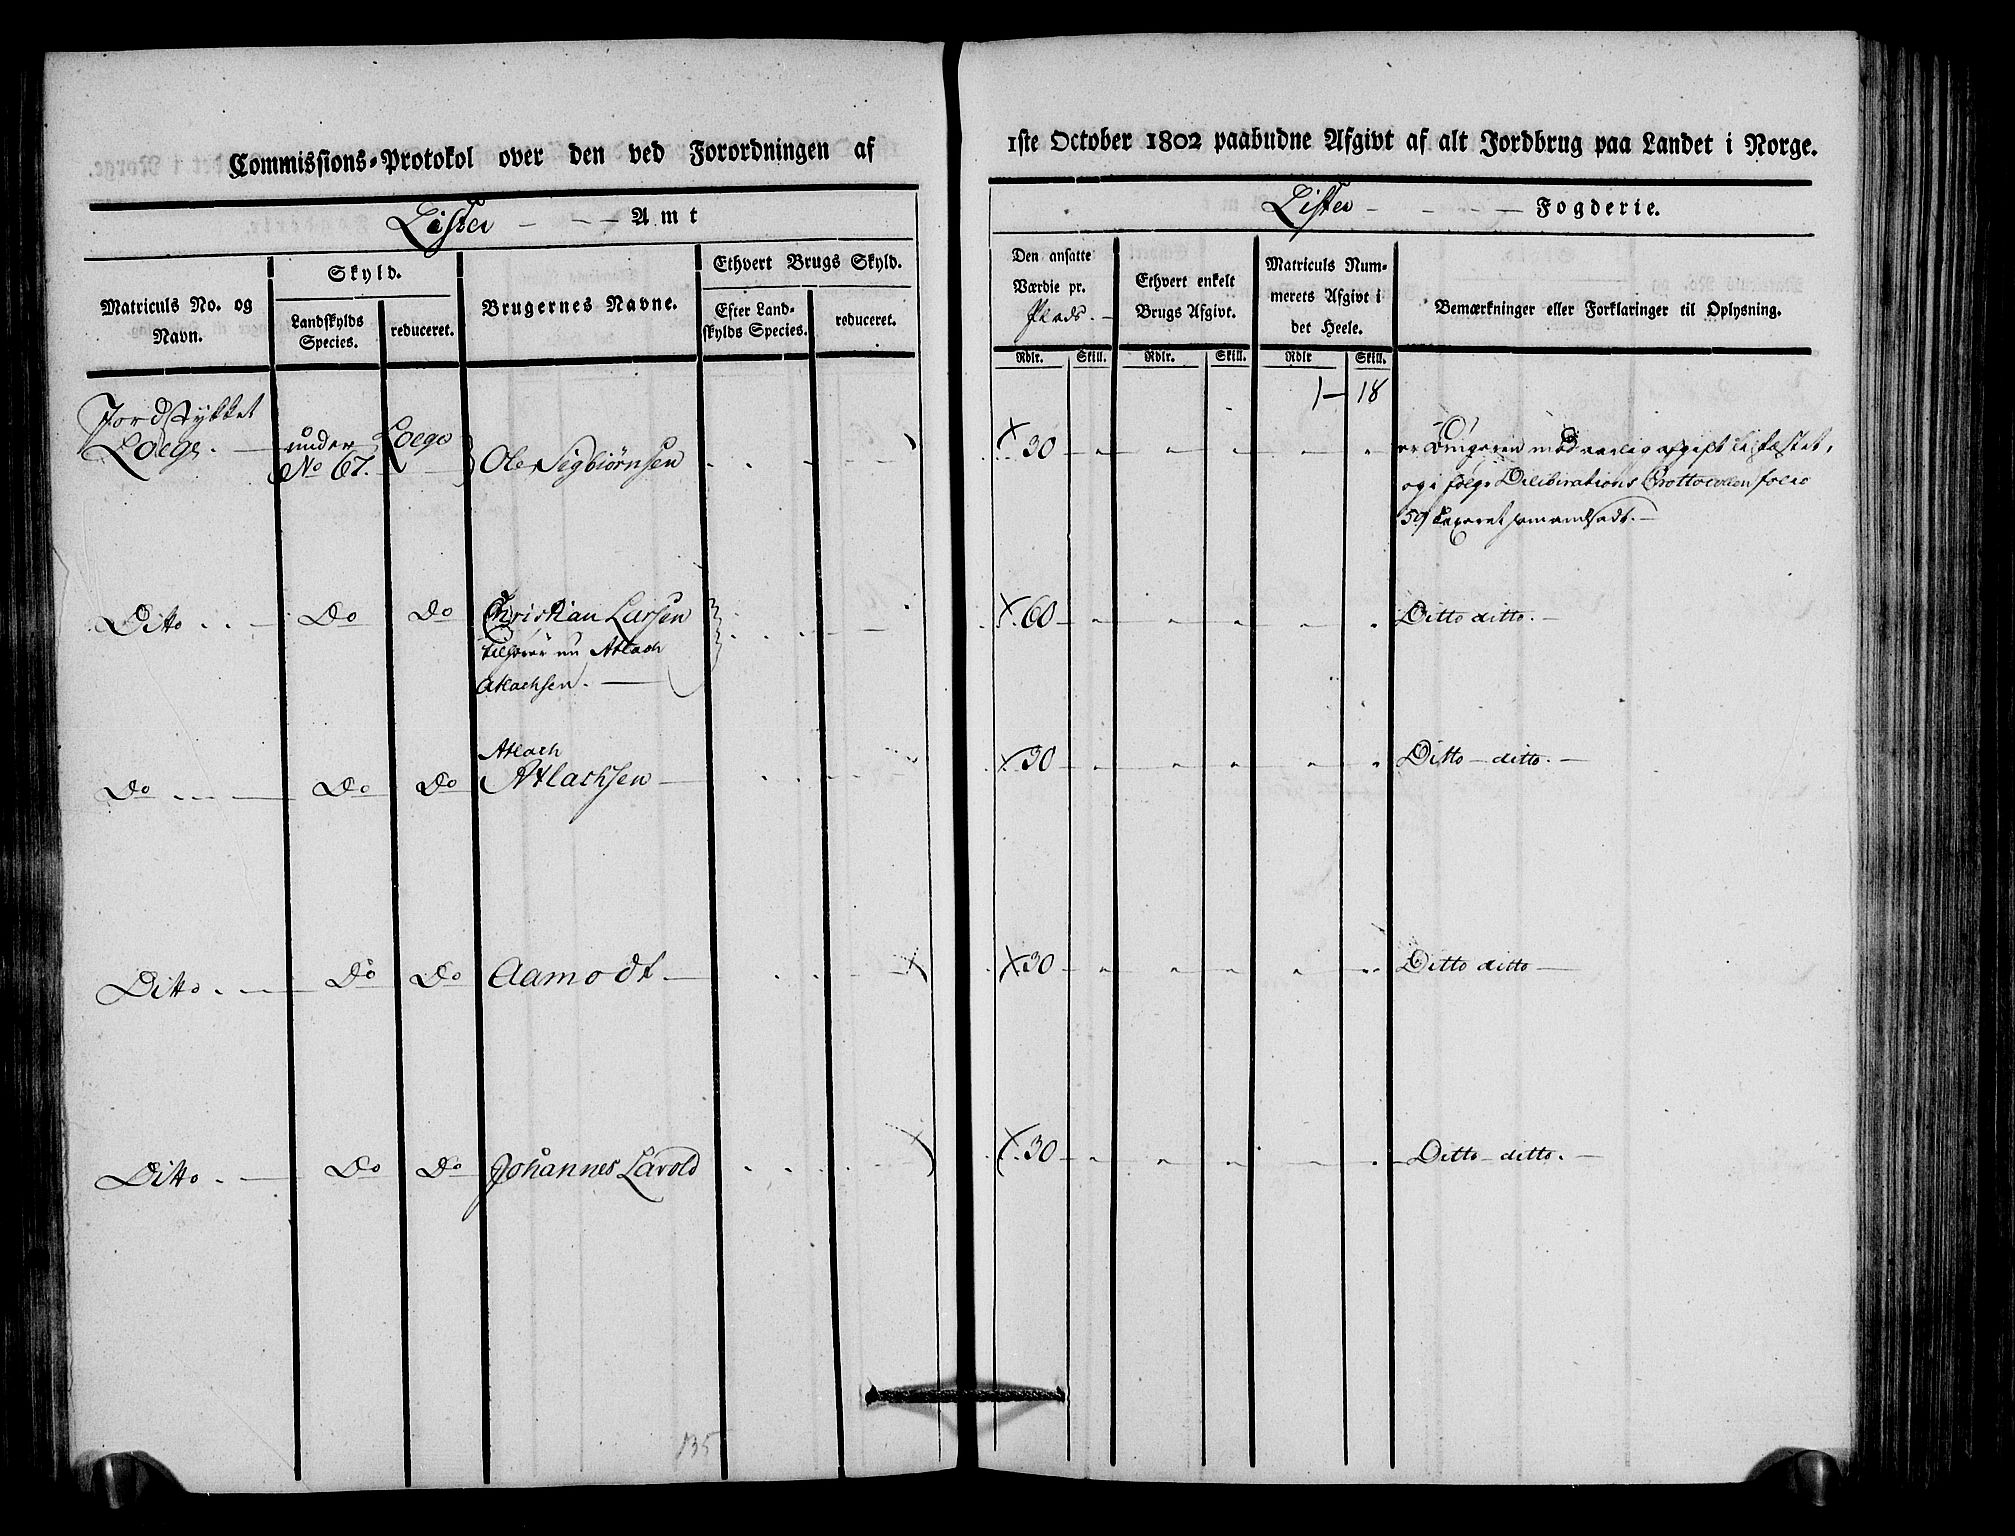 Commissions-Protokol over den ved Forordningen af
Lister - - - Amt
Matriculs No. og Navn.
Skyld.
Landskylds Species.
reduceret.
Brugernes Navne.
Ethvert Brugs Skyld.
Efter Landskylds Species.
reduceret.
Jordstykket
Loege. under No 67. Loege Ole Sigbiørnsen
Ditto Do Do Christian Larsen
tilhører nu Atlach
Atlachsen.
Do Do Do Atlach
Atlachsen
Ditto Do Do Aamodt
Ditto Do Do Johannes Lavold
135
1ste October 1802 paabudne Afgivt af alt Jordbrug paa Landet i Norge.
Lister - - - Fogderie.
Den ansatte Værdie pr. Plads.
Ethvert enkelt Brugs Afgivt.
Matriculs Nummerets Afgivt i det Heele.
Bemærkninger eller Forklaringer til Oplysning.
Rdlr. Skill. Rdlr. Skill. Rdlr Skill.
1 - 18
30 er Brugeren med aarlig afgift
og i følge Deliberations Protocollen folio
59
60 Ditto ditto.
30 Ditto - ditto.
30 Ditto ditto
30 Ditto - ditto.